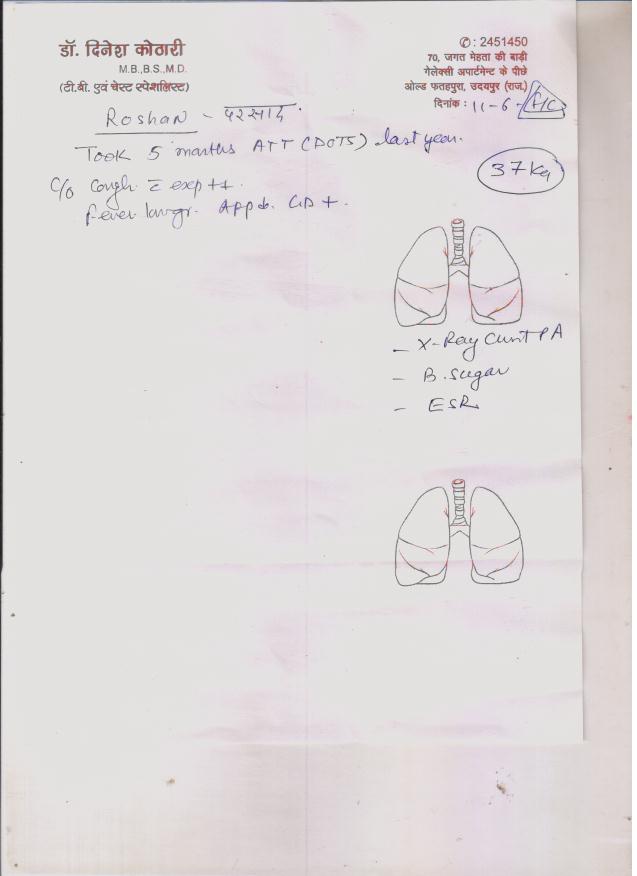 डॉ. दिनेश कोठारी
M.B.,B.S.,M.D.
(टी.बी. एवं चेस्ट स्पेशलिस्ट)
✆ : 2451450
70, जगत मेहता की बाड़ी
गेलेक्सी अपार्टमेन्ट के पीछे
ओल्ड फतहपुरा, उदयपुर (राज.)
दिनांक : 11-6-
Roshan -
Took 5 months ATT (DOTS) last year.
37 Kg
C/o Cough c̄ exp ++.
fever
- X-Ray PA
- B. Sugar
- ESR